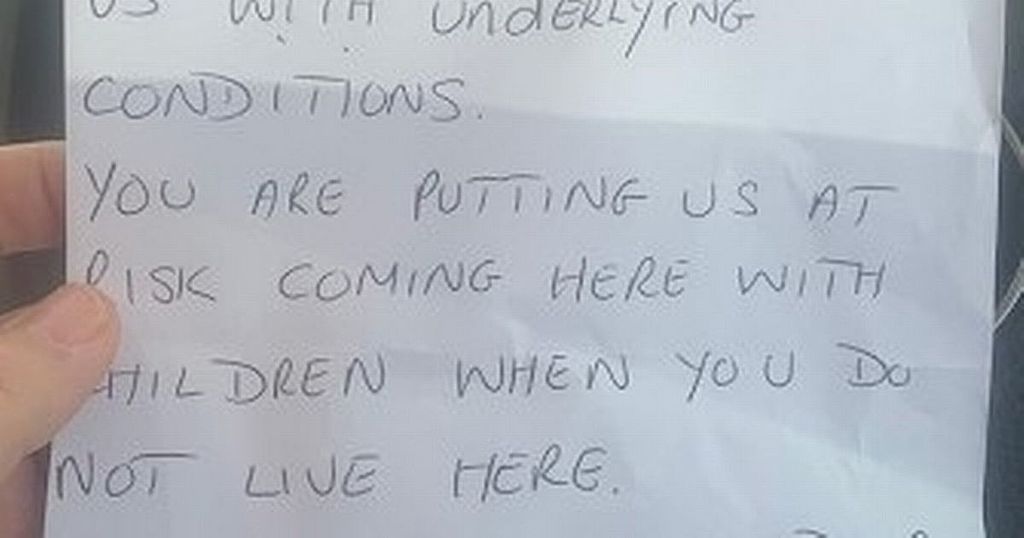 US WITH UnDERLYING
CONDITIONS.
YOU ARE PUTTING US AT
RISK COMING HERE WITH
CHILDREN WHEN YOU DO
NOT LIVE HERE.